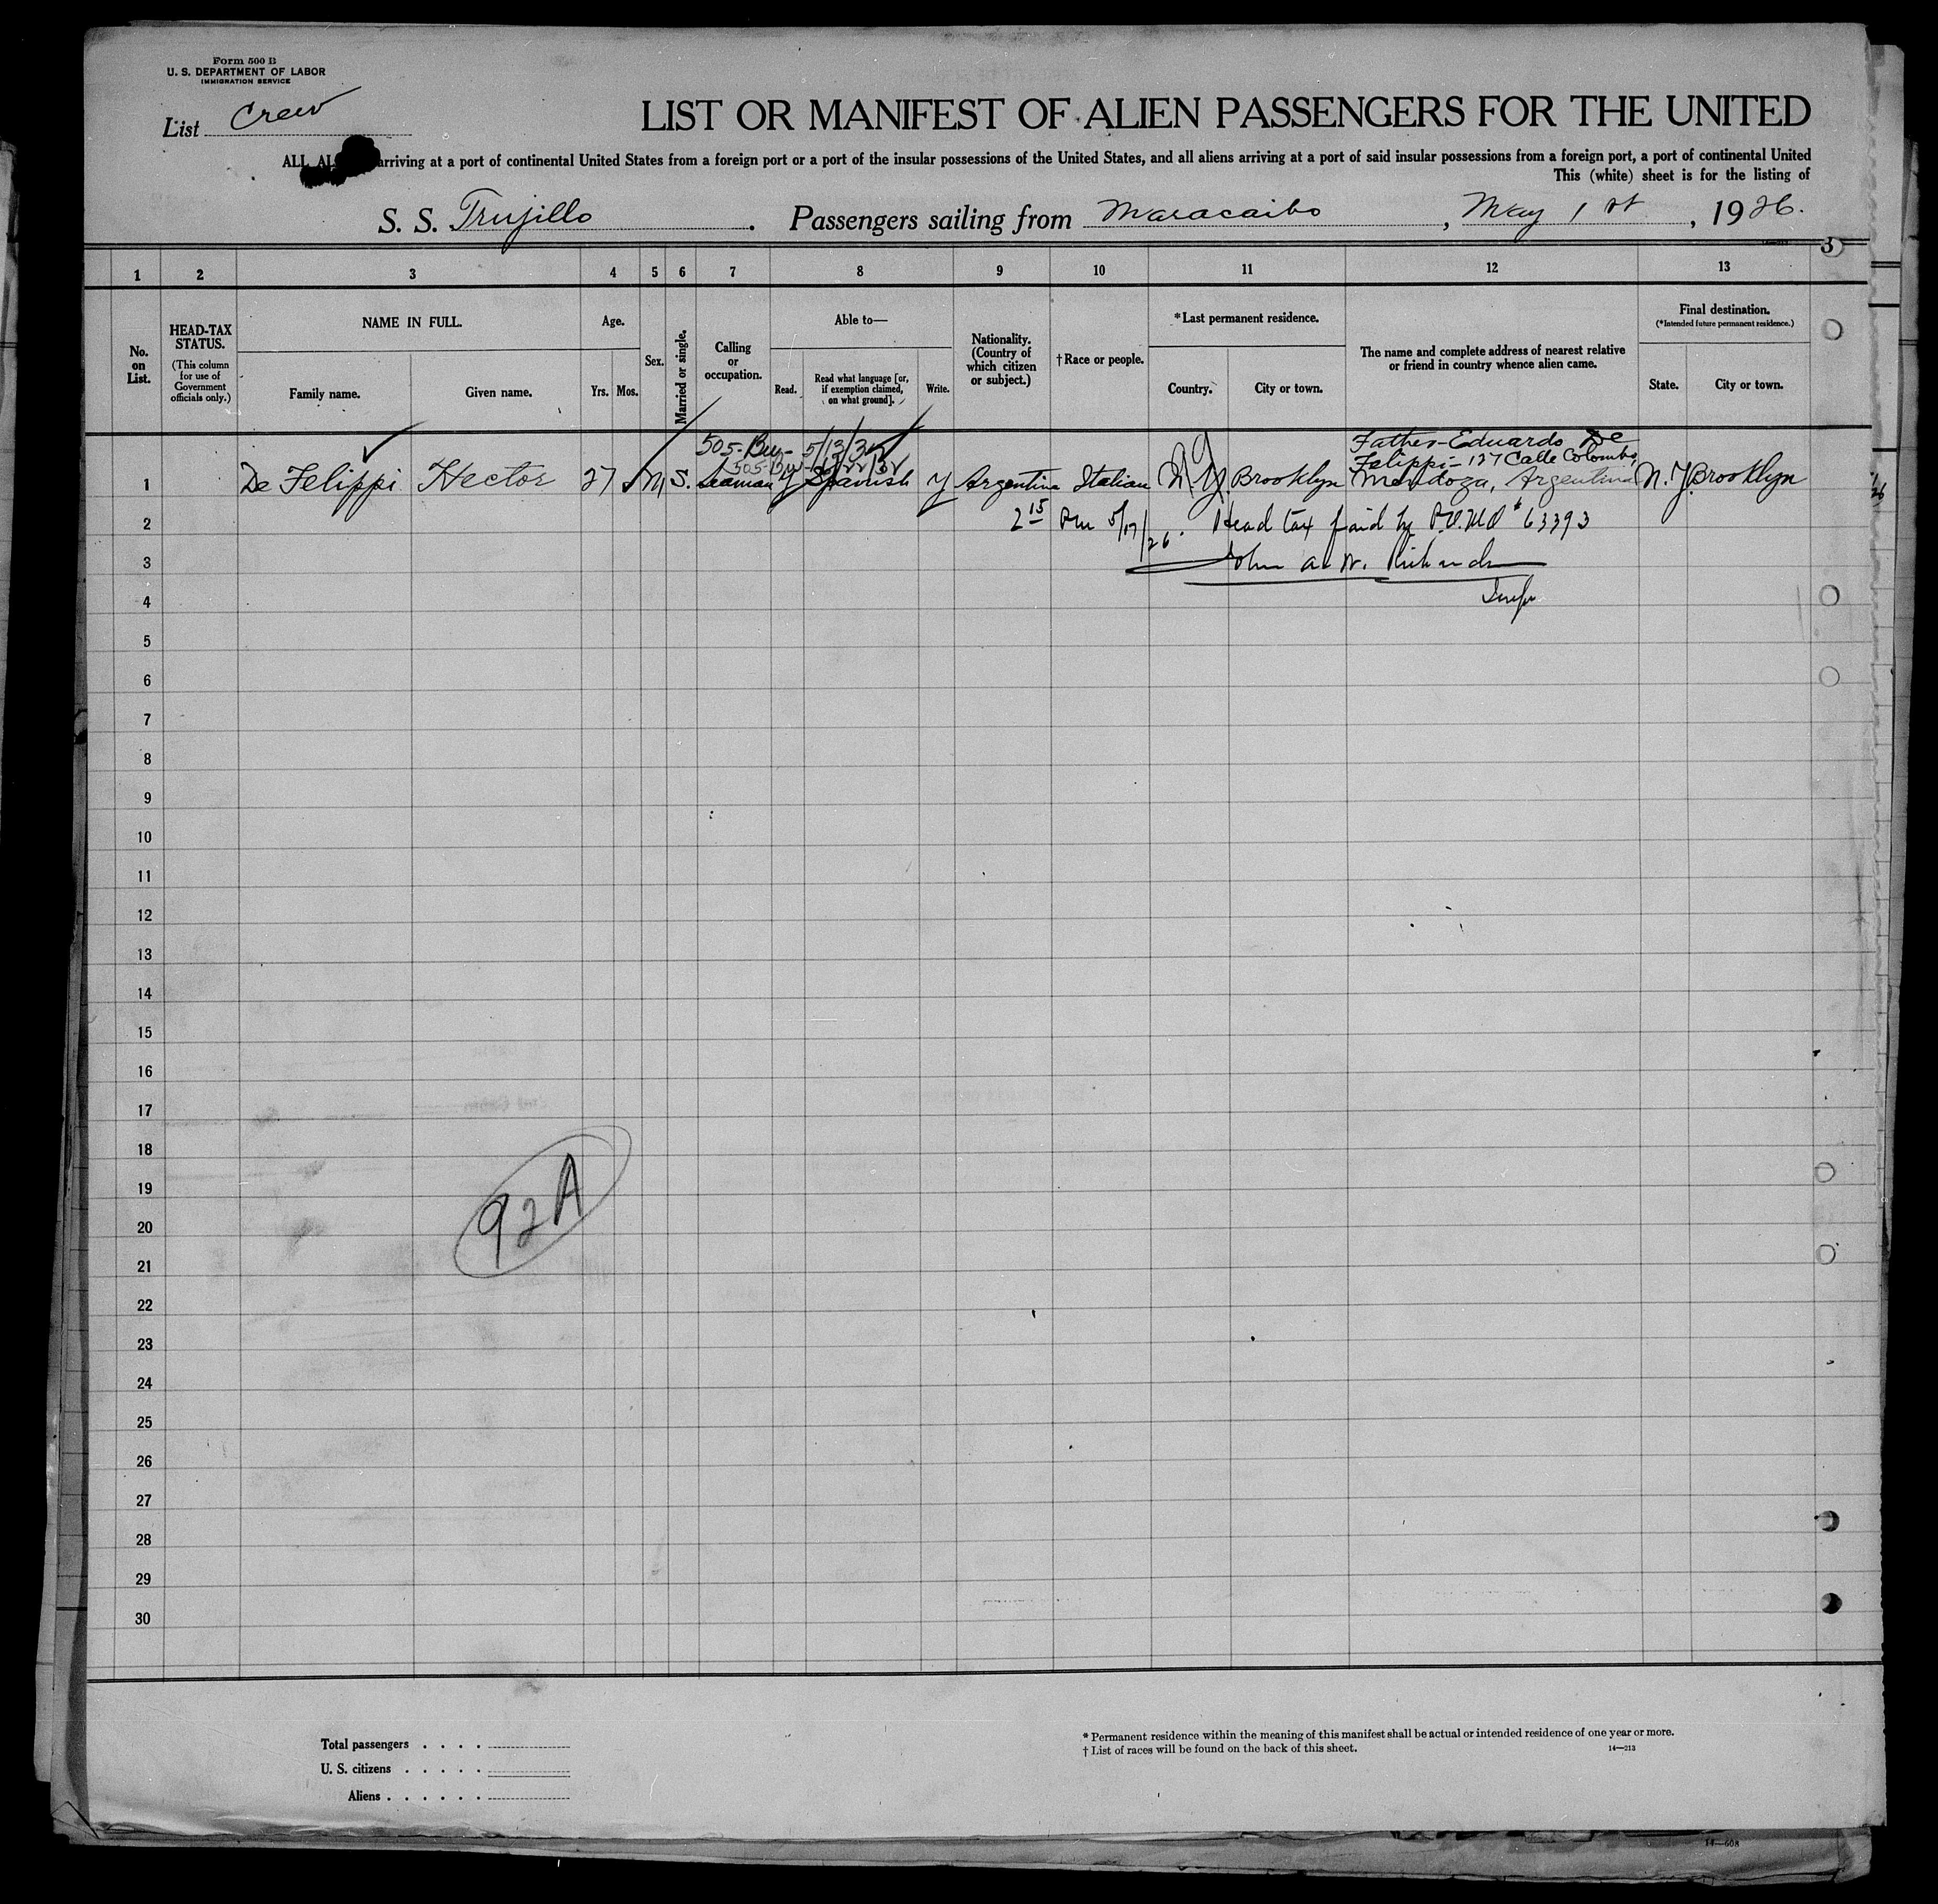 Form 500 B
U. S. DEPARTMENT OF LABOR
IMMIGRATION SERVICE
List Crew
LIST OR MANIFEST OF ALIEN PASSENGERS FOR THE UNITED
ALL AL arriving at a port of continental United States from a foreign port or a port of the insular possessions of the United States, and all aliens arriving at a port of said insular possessions from a foreign port, a port of continental United
This (white) sheet is for the listing of
S. S. Trujillo . Passengers sailing from Maracaibo , May 1st , 1926.
3
1 2 3 4 5 6 7 8 9 10 11 12 13
No. on List.
HEAD-TAX STATUS.
(This column for use of Government officials only.)
NAME IN FULL.
Family name. Given name.
Age.
Yrs. Mos.
Sex.
Married or single.
Calling or occupation.
Able to—
Read. Read what language [or, if exemption claimed, on what ground]. Write.
Nationality. (Country of which citizen or subject.)
† Race or people.
* Last permanent residence.
Country. City or town.
The name and complete address of nearest relative or friend in country whence alien came.
Final destination.
(*Intended future permanent residence.)
State. City or town.
505- 5/13/32
Father-Eduardo De
Felippi - 127 Calle Colombo,
1 De Felippi Hector 27 M S. Seaman Y Spanish Y Argentina Italian N.Y. Brooklyn Mendoza, Argentina N.Y. Brooklyn
2 2 15 Pm 5/17/26. Head tax paid by P.O.M.O #63393
3 John A. W. Richards
4 Insp
5
6
7
8
9
10
11
12
13
14
15
16
17
18
19
92A
20
21
22
23
24
25
26
27
28
29
30
Total passengers . . . .
U. S. citizens . . . . .
Aliens . . . . . .
* Permanent residence within the meaning of this manifest shall be actual or intended residence of one year or more.
† List of races will be found on the back of this sheet. 14—213
14—608